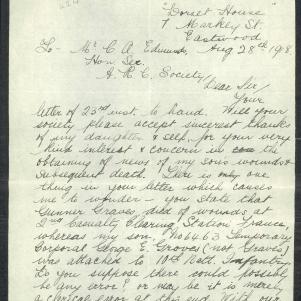 "Dorset House"
7 Markey St.
Eastwood
To - Mr C. A. Edmunds, Aug 28th 1918
Hon. Sec.
A. R. C. Society
Dear Sir
Your
letter of 23rd inst. to hand. Will your
society please accept sincerest thanks
of my daughter & self for your very
kind interest & concern in the
obtaining of news of my son's wounds &
subsequent death. There is only one
thing in your letter which causes
me to wonder - you state that
Gunner Graves, died of wounds at
2nd Casualty Clearing Station, France,
whereas my son No 6463 Temporary
Corporal George E. Grover (not Graves)
was attached to 10th Batt. Infantry.
Do you suppose there could possibly
be any error? or may be it is merely
a clerical error at this end. With our